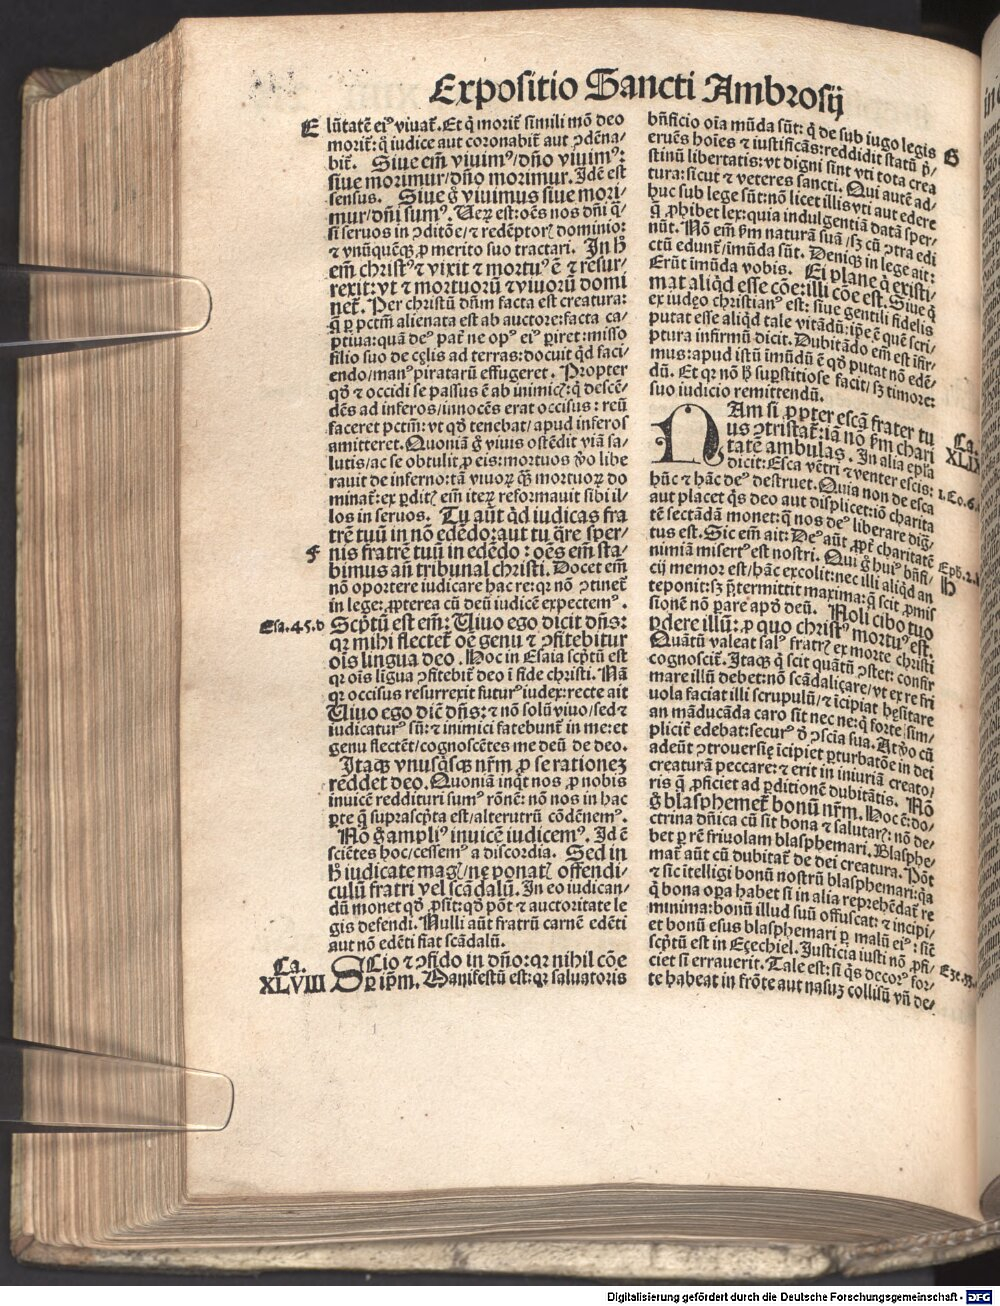 Expositio Sancti Ambrosij
E
lūtatē eiꝰ viuat̄. Et q̄ morit̄ simili mō deo
morit̄: q̄ iudice aut coronabit̄ aut ↄdēna-
bit̄. Siue em̄ viuimꝰ/dn̄o viuimꝰ:
siue morimur/dn̄o morimur. Idē est
sensus. Siue g̊ viuimus siue mori-
mur/dn̄i sumꝰ. Ueꝝ est: oēs nos dn̄i q̄-
si seruos in ↄditōe/⁊ redēptoꝝ dominio:
⁊ vnūquēqꝫ ꝓ merito suo tractari. In h̄
em̄ christꝰ ⁊ vixit ⁊ mortuꝰ ē ⁊ resur-
rexit: vt ⁊ mortuorū ⁊ viuorū domi
net̄. Per christū dn̄m facta est creatura:
q̄ ꝑ pctm̄ alienata est ab auctore: facta ca-
ptiua: quā deꝰ pat̄ ne opꝰ eiꝰ ꝑiret: misso
filio suo de cęlis ad terras: docuit qd̄ faci-
endo/manꝰ piratarū effugeret. Propter
qd̄ ⁊ occidi se passus ē ab inimicꝭ: q̄ descē-
dēs ad inferos/innocēs erat occisus: reū
faceret pctm̄: vt qd̄ tenebat/apud inferos
amitteret. Quoniā g̊ viuis ostēdit viā sa-
lutis/ac se obtulit ꝓ eis: mortuos v̊o libe
rauit de inferno: tā viuoꝝ qꝫ mortuoꝝ do
minat̄: ex ꝑditꝭ em̄ iteꝝ reformauit sibi il-
los in seruos. Tu aūt qd̄ iudicas fra
trē tuū in nō edēdo: aut tu q̄re sper-
F
nis fratrē tuū in edēdo: oēs em̄ sta-
bimus an̄ tribunal christi. Docet em̄
nō oportere iudicare hac re: qꝛ nō ↄtinet̄
in lege: ꝓpterea cū deū iudicē expectemꝰ.
Esa.45.d
Scptū est em̄: Uiuo ego dicit dn̄s:
qꝛ mihi flectet̄ oē genu ⁊ ↄfitebitur
oīs lingua deo. Hoc in Esaia scptū est
qꝛ oīs ligua ↄfitebit̄ deo ī fide christi. Nā
qꝛ occisus resurrexit futurꝰ iudex: recte ait
Uiuo ego dic̄ dn̄s: ⁊ nō solū viuo/sed ⁊
iudicaturꝰ sū: ⁊ inimici fatebunt̄ in me: et
genu flectēt/cognoscētes me deū de deo.
Itaqꝫ vnusq̄sqꝫ nr̄m ꝓ se rationeꝫ
reddet deo. Quoniā inq̄t nos ꝓ nobis
inuicē reddituri sumꝰ rōnē: nō nos in hac
ꝑte q̄ suprascpta est/alterutrū cōdēnemꝰ.
Nō g̊ ampliꝰ inuicē iudicemꝰ. Id ē
sciētes hoc/cessemꝰ a discordia. Sed in
h̄ iudicate magꝭ/ne ponatꝭ offendi-
culū fratri vel scādalū. In eo iudican-
dū monet qd̄ ꝓsit: qd̄ pōt ⁊ auctoritate le
gis defendi. Nulli aūt fratrū carnē edēti
aut nō edēti fiat scādalū.
Ca.
XLVIII
SCio ⁊ ↄfido in dn̄o: qꝛ nihil cōe
ꝑ ip̄m. Manifestū est: qꝛ saluatoris
bn̄ficio oīa mūda sūt: q̄ de sub iugo legis
G
eruēs hoīes ⁊ iustificās: reddidit statū p̄-
stinū libertatis: vt digni sint vti tota crea
tura: sicut ⁊ veteres sancti. Qui autē ad-
huc sub lege sūt: nō licet illis vti aut edere
q̄ ꝓhibet lex: quia indulgentiā datā sper-
nūt. Nō em̄ ẜm naturā suā/sꝫ cū ↄtra edi
ctū edunt̄/imūda sūt. Deniqꝫ in lege ait:
Erūt imūda vobis. Ei plane q̄ existi-
mat aliqd̄ esse cōe: illi cōe est. Siue q̄
ex iudęo christianꝰ est: siue gentili fidelis
putat esse aliqd̄ tale vitādū: ip̄e ē quē scri-
ptura infirmū dicit. Dubitādo em̄ est īfir-
mus: apud istū imūdū ē qd̄ putat nō edē-
dū. Et qꝛ nō h̄ supstitiose facit/sꝫ timore:
suo iudicio remittendū.
Ca.
XLIX
NAm si ꝓpter escā frater tu
us ↄtristat̄: iā nō ẜm chari
tatē ambulas. In alia epl̄a
dicit: Esca vētri ⁊ venter escis:
1.Co.6.
hūc ⁊ hāc deꝰ destruet. Quia non de esca
aut placet q̄s deo aut displicet: iō charita
tē sectādā monet: q̄ nos deꝰ liberare dig-
tus est. Sic em̄ ait: Deꝰ aūt ꝓpt̄ charitatē
Eph.2.
nimiā misertꝰ est nostri. Qui g̊ huiꝰ bn̄fi-
H
cij memor est/hāc excolit: nec illi aliqd̄ an
teponit: sꝫ p̄termittit maxima: q̄ scit ꝓmis
sionē nō ꝑare apd̄ deū. Noli cibo tuo
ꝑdere illū: ꝓ quo christꝰ mortuꝰ est.
Quātū valeat salꝰ fratrꝭ ex morte christi
cognoscit̄. Itaqꝫ q̄ scit quātū ↄstet: confir
mare illū debet: nō scādaliçare/vt ex re fri
uola faciat illi scrupulū/⁊ īcipiat hęsitare
an māducāda caro sit nec ne: q̄ forte sim-
plicit̄ edebat: securꝰ d̄ ↄscia sua. At v̊o cū
adeūt ↄtrouersię īcipiet ꝑturbatōe in dei
creaturā peccare: ⁊ erit in iniuriā creato-
ris q̄ ꝓficiet ad ꝑditionē dubitātis. Nō
g̊ blasphemet̄ bonū nr̄m. Hoc ē: do-
ctrina dn̄ica cū sit bona ⁊ salutarꝭ: nō de-
bet ꝑ rē friuolam blasphemari. Blasphe-
mat̄ aūt cū dubitat̄ de dei creatura. Pōt
⁊ sic itelligi bonū nostrū blasphemari: q̄a
q̄ bona oꝑa habet si in alia reprehēdat̄ re
minima: bonū illud suū offuscat: ⁊ incipi-
et bonū eius blasphemari ꝑ malū eiꝰ: sic̄
scptū est in Eçechiel. Iusticia iusti nō ꝓfi-
Eze.33.
ciet si errauerit. Tale est: si q̄s decorꝰ for-
te habeat in frōte aut nasuꝫ collisū vn̄ de-
Digitalisierung gefördert durch die Deutsche Forschungsgemeinschaft - DFG